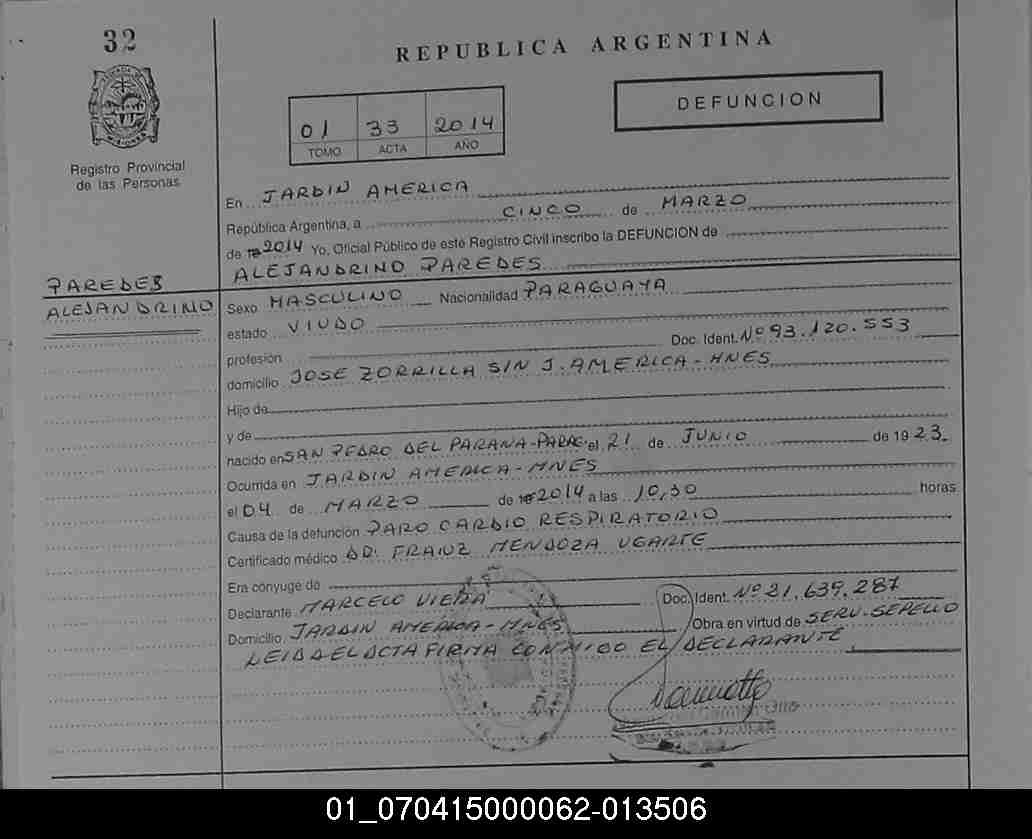 32
REPUBLICA ARGENTINA
DEFUNCION
01 33 2014
TOMO ACTA AÑO
Registro Provincial
de las Personas
En JARDIN AMERICA
República Argentina, a CINCO de MARZO
de 2014 Yo, Oficial Público de este Registro Civil inscribo la DEFUNCION de
ALEJANDRINO PAREDES
PAREDES
ALEJANDRINO
Sexo MASCULINO Nacionalidad PARAGUAYA
estado VIUDO
profesión Doc. Ident. Nº 93.120.553
domicilio JOSE ZORRILLA S/N J. AMERICA - MNES
Hijo de
y de
nacido en SAN PEDRO DEL PARANA - PARAG el 21 de JUNIO de 1923
Ocurrida en JARDIN AMERICA - MNES
el 04 de MARZO de 2014 a las 10,30 horas
Causa de la defunción PARO CARDIO RESPIRATORIO
Certificado médico DR. FRANZ MENDOZA UGARTE
Era cónyuge de
Declarante MARCELO VIERA Doc. Ident. Nº 21.639.287
Domicilio JARDIN AMERICA - MNES Obra en virtud de SERV. SEPELIO
LEIDA EL ACTA FIRMA CONMIGO EL DECLARANTE
01_070415000062-013506